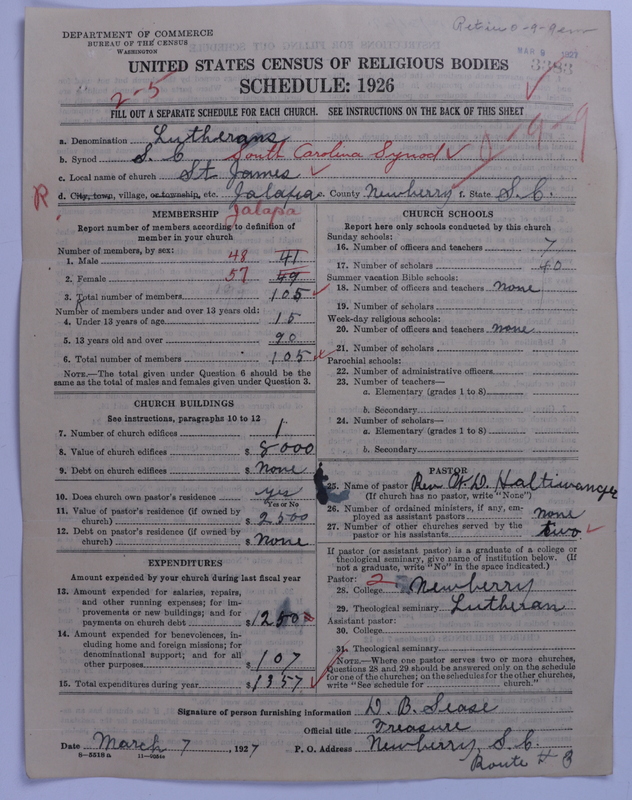 DEPARTMENT OF COMMERCE
BUREAU OF THE CENSUS
WASHINGTON
MAR 9 1927
3383
UNITED STATES CENSUS OF RELIGIOUS BODIES
SCHEDULE: 1926
2-5
FILL OUT A SEPARATE SCHEDULE FOR EACH CHURCH. SEE INSTRUCTIONS ON THE BACK OF THIS SHEET
0-9-9
a. Denomination Lutherans
b. Synod S. C. South Carolina Synod
c. Local name of church St James
R
d. City, town, village, or township, etc. Jalapa e. County Newberry f. State S.C.
Jalapa
MEMBERSHIP
Report number of members according to definition of
member in your church
Number of members, by sex:
1. Male 48 41
2. Female 57 49
3. Total number of members 105
Number of members under and over 13 years old:
4. Under 13 years of age 15
5. 13 years old and over 90
6. Total number of members 105
NOTE.—The total given under Question 6 should be the
same as the total of males and females given under Question 3.
CHURCH BUILDINGS
See instructions, paragraphs 10 to 12
7. Number of church edifices 1
8. Value of church edifices $ 8000
9. Debt on church edifices $ None
10. Does church own pastor's residence yes
Yes or No
11. Value of pastor's residence (if owned by
church) $ 2500
12. Debt on pastor's residence (if owned by
church) $ None
EXPENDITURES
Amount expended by your church during last fiscal year
13. Amount expended for salaries, repairs,
and other running expenses; for im-
provements or new buildings; and for
payments on church debt $ 1250
14. Amount expended for benevolences, in-
cluding home and foreign missions; for
denominational support; and for all
other purposes $ 107
15. Total expenditures during year $ 1357
CHURCH SCHOOLS
Report here only schools conducted by this church
Sunday schools:
16. Number of officers and teachers 7
17. Number of scholars 40
Summer vacation Bible schools:
18. Number of officers and teachers none
19. Number of scholars
Week-day religious schools:
20. Number of officers and teachers none
21. Number of scholars
Parochial schools:
22. Number of administrative officers
23. Number of teachers—
a. Elementary (grades 1 to 8)
b. Secondary
24. Number of scholars—
a. Elementary (grades 1 to 8)
b. Secondary
PASTOR
25. Name of pastor Rev. W. D. Haltiwanger
(If church has no pastor, write "None")
26. Number of ordained ministers, if any, em-
ployed as assistant pastors none
27. Number of other churches served by the
pastor or his assistants two
If pastor (or assistant pastor) is a graduate of a college or
theological seminary, give name of institution below. (If
not a graduate, write "No" in the space indicated.)
Pastor: 2
28. College Newberry
29. Theological seminary Lutheran
Assistant pastor:
30. College
31. Theological seminary
NOTE.—Where one pastor serves two or more churches,
Questions 28 and 29 should be answered only on the schedule
for one of the churches; on the schedules for the other churches,
write "See schedule for church."
Signature of person furnishing information D. B. Sease
Official title Treasure
Date March 7, 1927 P. O. Address Newberry, S.C.
Route # 3
8-5518a 11-9054a